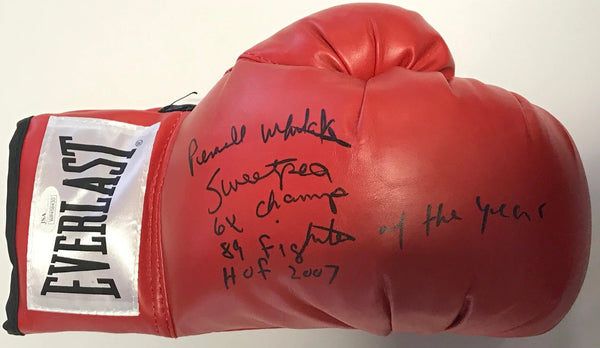 Pernell Whitaker
Sweetpea
6X Champ
89 Fighter of the Year
HOF 2007
EVERLAST
JSA